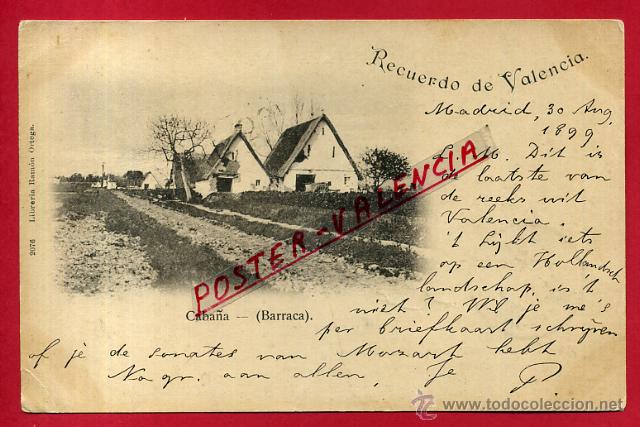 Recuerdo de Valencia.
Madrid, 30 Aug.
1899.
L. M. Dit is
de laatste van
de reeks uit
Valencia.
't lijkt iets
op een Hollandsch
landschap, is 't
niet? Wil je me 's
per briefkaart schrijven
of je de sonates van Mozart hebt
No gr. aan allen, Je P.
Cabaña — (Barraca).
2076 Librería Ramón Ortega.
POSTER-VALENCIA
© www.todocoleccion.net